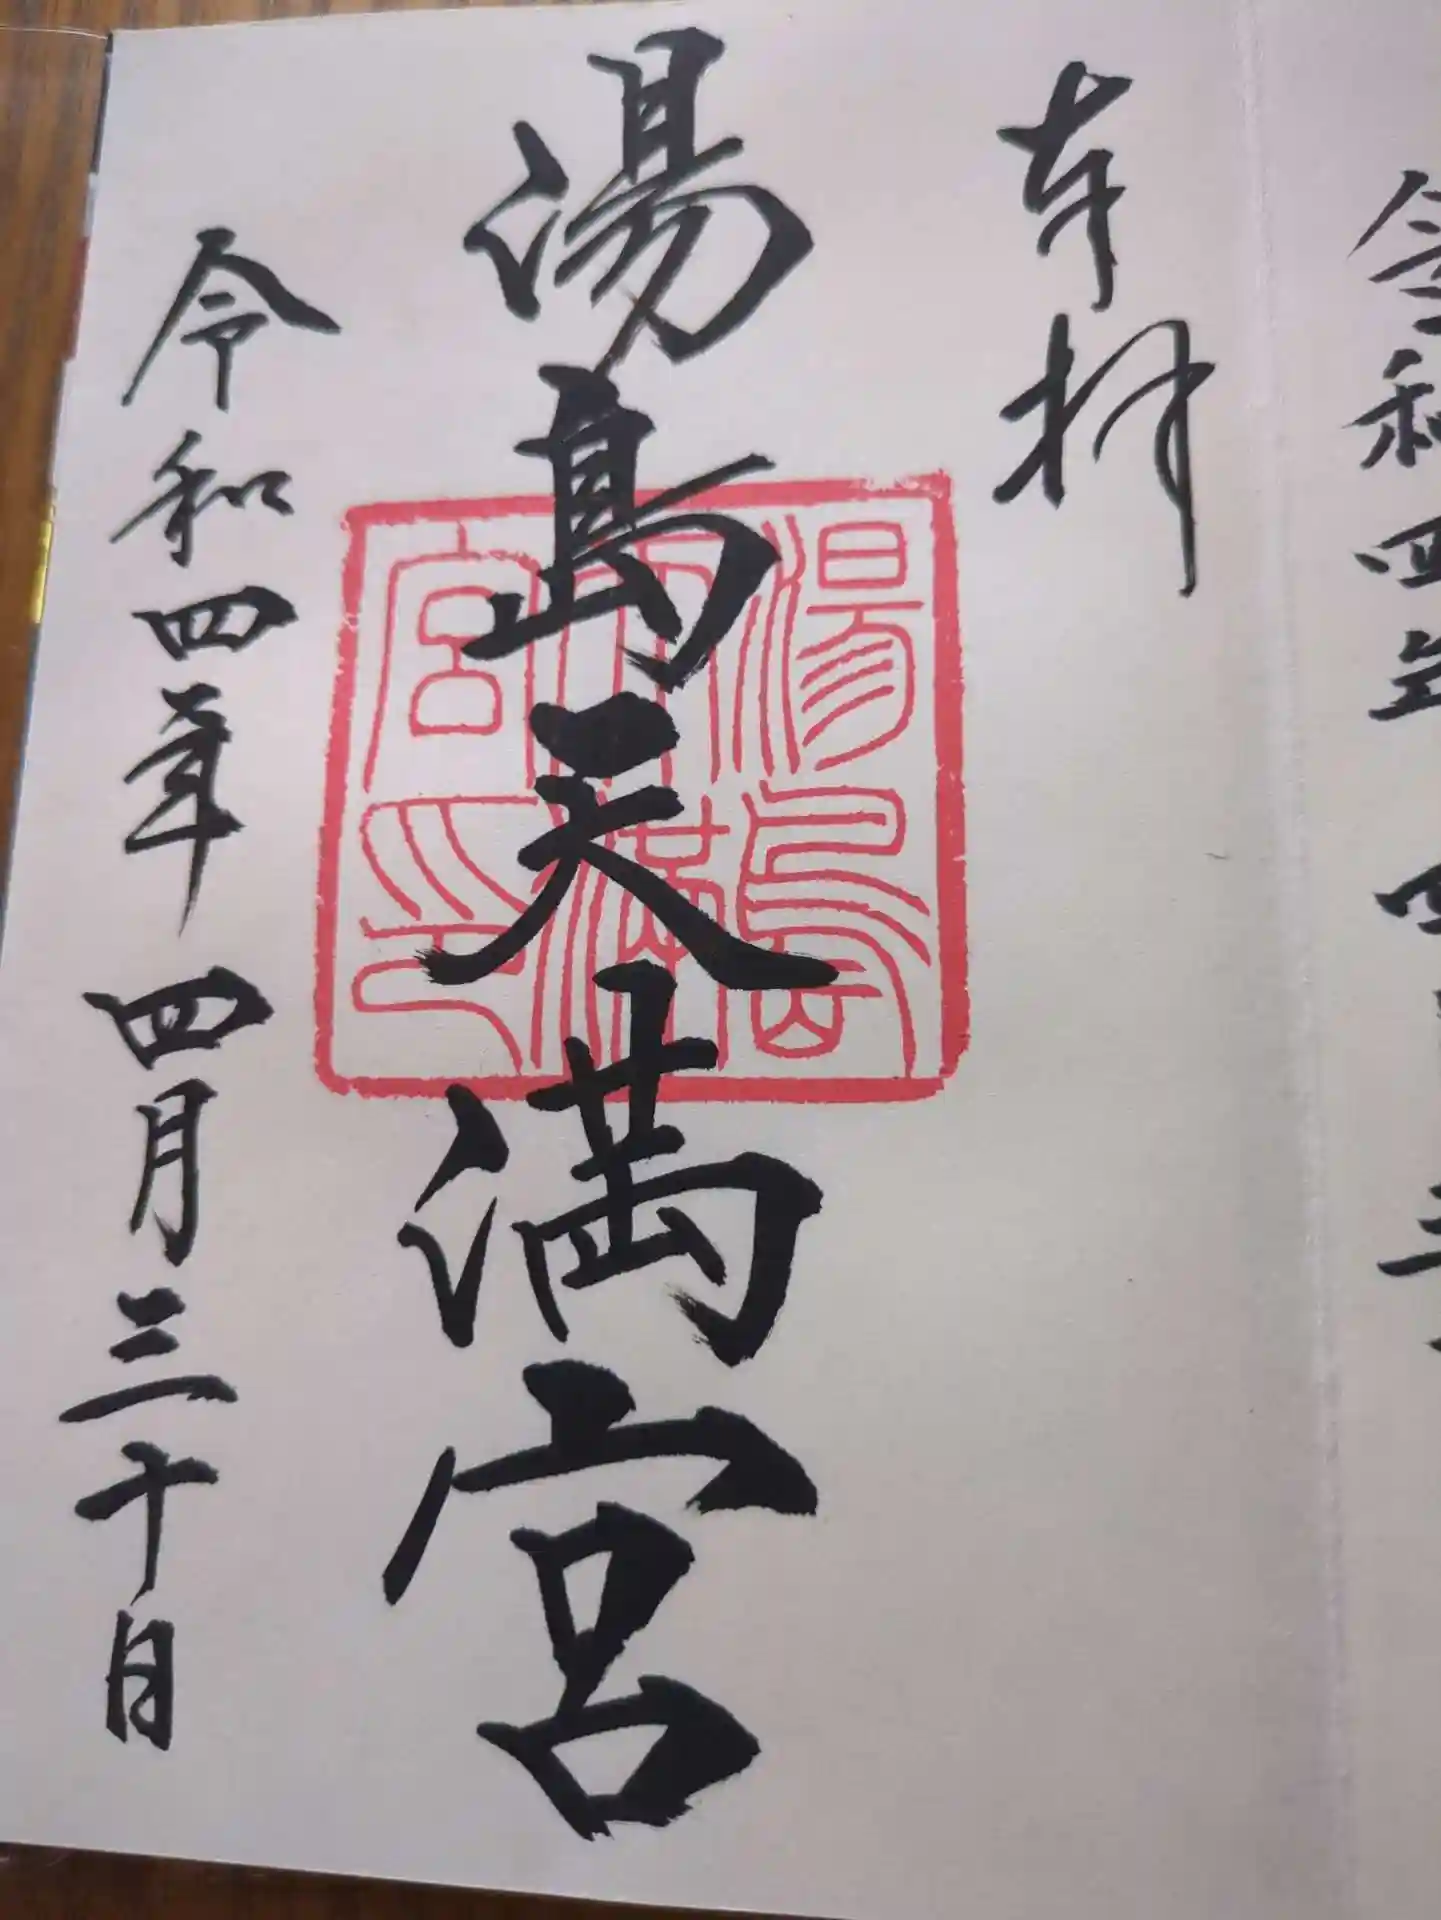 奉拝
湯島天満宮
湯島天満宮印
令和四年 四月三十日
令和四年